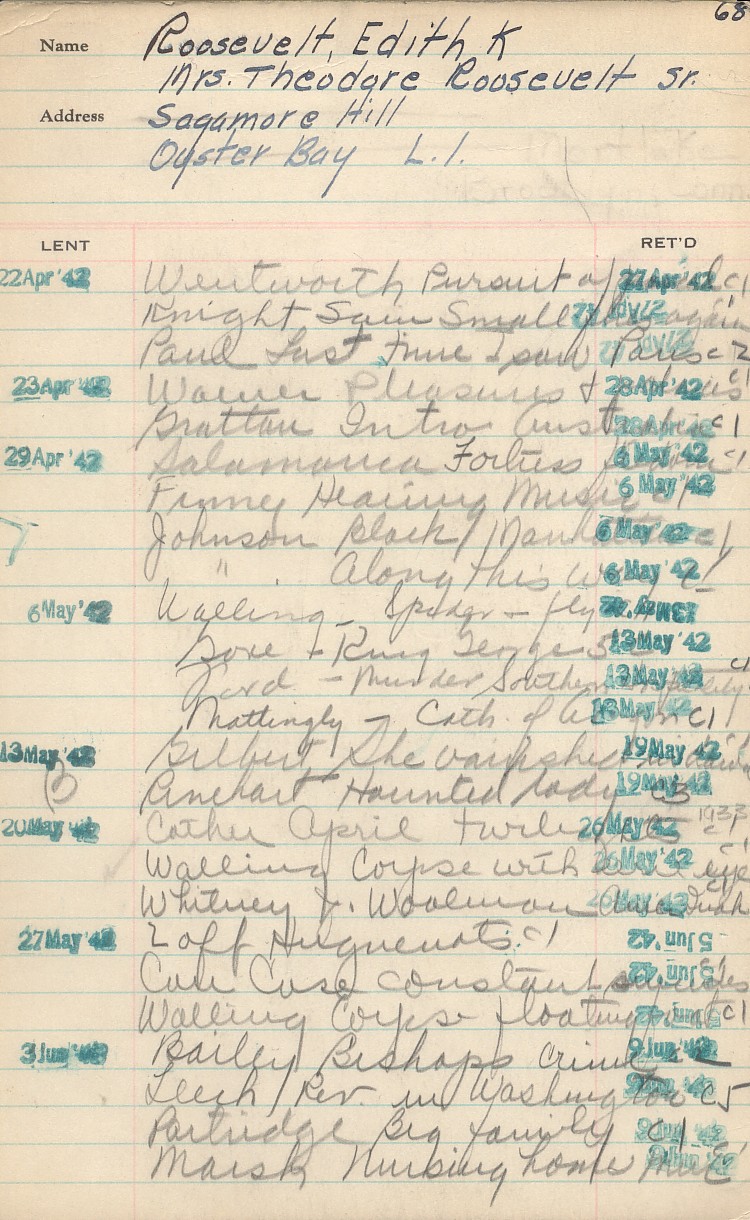 68
Name Roosevelt, Edith K
Mrs. Theodore Roosevelt Sr.
Address Sagamore Hill
Oyster Bay L.I.
LENT RET'D
22 Apr '42 Wentworth Pursuit of 27 Apr '42 c1
Knight Sam Small again 27 Apr '42
Paul Last time I saw Paris c2 27 Apr '42
23 Apr '42 Warner Pleasures + 28 Apr '42 c1
Grattan Intro Australia c1 28 Apr '42
29 Apr '42 Salamanca Fortress 6 May '42 c1
Finney Hearing Music c1 6 May '42
Johnson Black Manhattan c1 6 May '42
" Along this way c1 6 May '42
6 May '42 Walling Spider - fly 13 May '42
- King George 13 May '42
Ford - Murder Southern 13 May '42 c1
Mattingly - Cath. of Aragon c1 13 May '42
13 May '42 Gilbert She vanished in 19 May '42 c1
Rinehart Haunted lady c3 19 May '42
20 May '42 Cather April Twilights 1933 c1 26 May '42
Walling Corpse with eye c1 26 May '42
Whitney J. Woolman c1 26 May '42
27 May '42 Zoff Huguenots c1 5 Jun '42
Case constant suicides c1 5 Jun '42
Walling Corpse floating c1 5 Jun '42
3 Jun '42 Bailey Bishops Crime 9 Jun '42
Leech Rev. in Washington c5 9 Jun '42
Partridge Big family c1 9 Jun '42
Marsh Nursing home 9 Jun '42